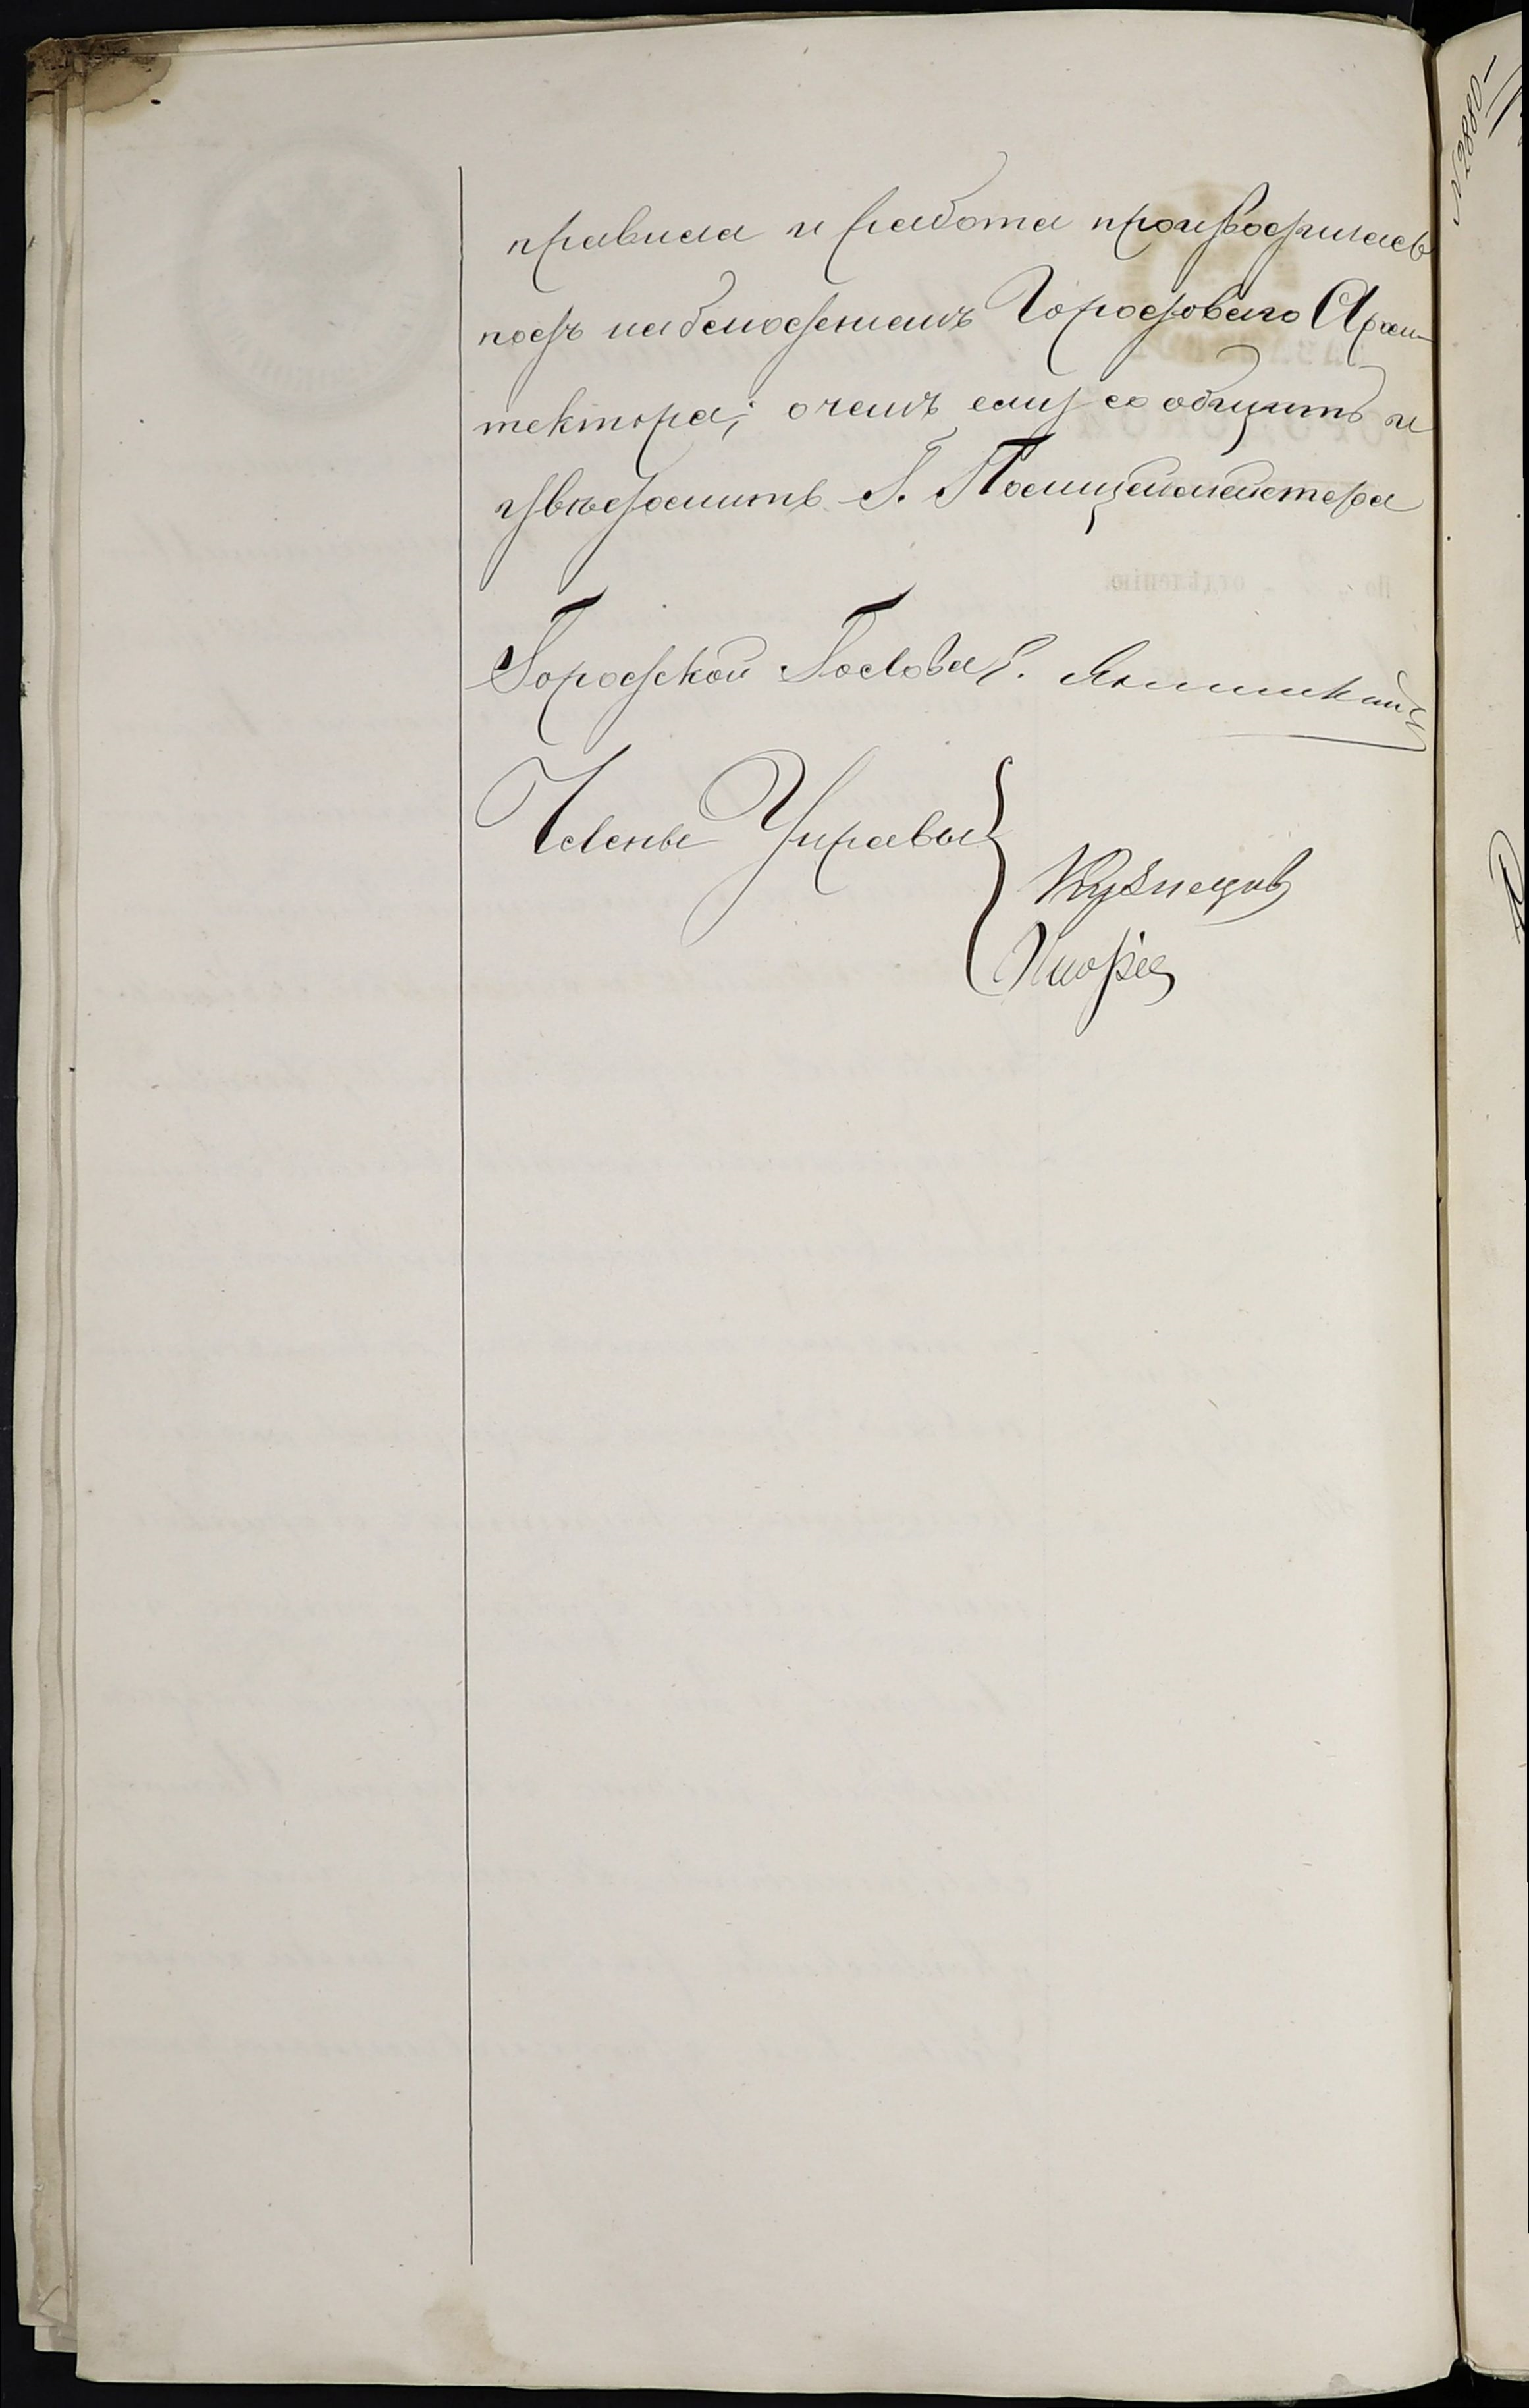 правила и работа производилась
подъ наблюденіемъ Городоваго Архи-
тектора; о чемъ ему сообщить и
увѣдомить Г. Полицеймейстера
Городской Голова Э. Янишевскій
Члены Управы
Кузнецовъ
№ 2880